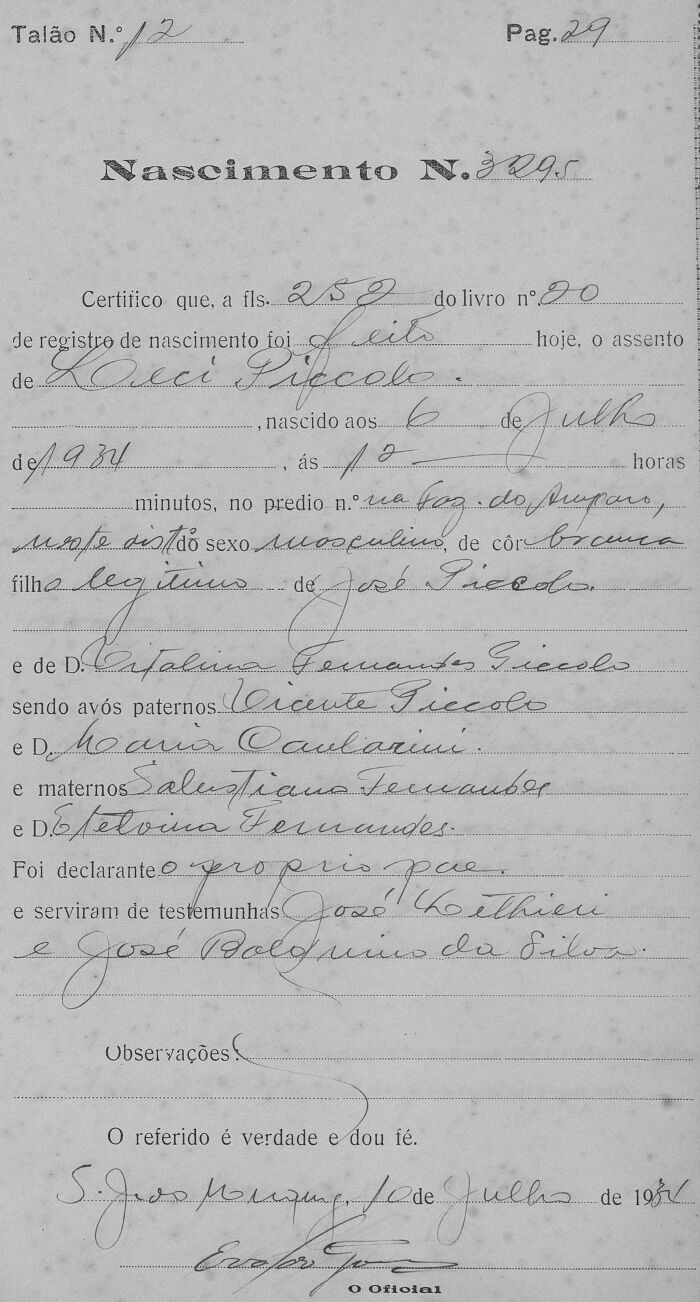 Talão N.º 12 Pag. 29
Nascimento N. 3295
Certifico que, a fls. 252 do livro nº. 20
de registro de nascimento foi feito hoje, o assento
de Leci Piccolo.
, nascido aos 6 de Julho
de 1934, ás 12 horas
minutos, no predio n.º na Faz. do Amparo,
neste distº do sexo masculino, de côr branca
filho legitimo de José Piccolo.
e de D. Vitalina Fernandes Piccolo
sendo avós paternos Vicente Piccolo
e D. Maria
e maternos Salustiano Fernandes
e D. Etelvina Fernandes.
Foi declarante o proprio pae.
e serviram de testemunhas José
e José da Silva.
Observações:
O referido é verdade e dou fé.
S. João 10 de Julho de 1934
O Oficial